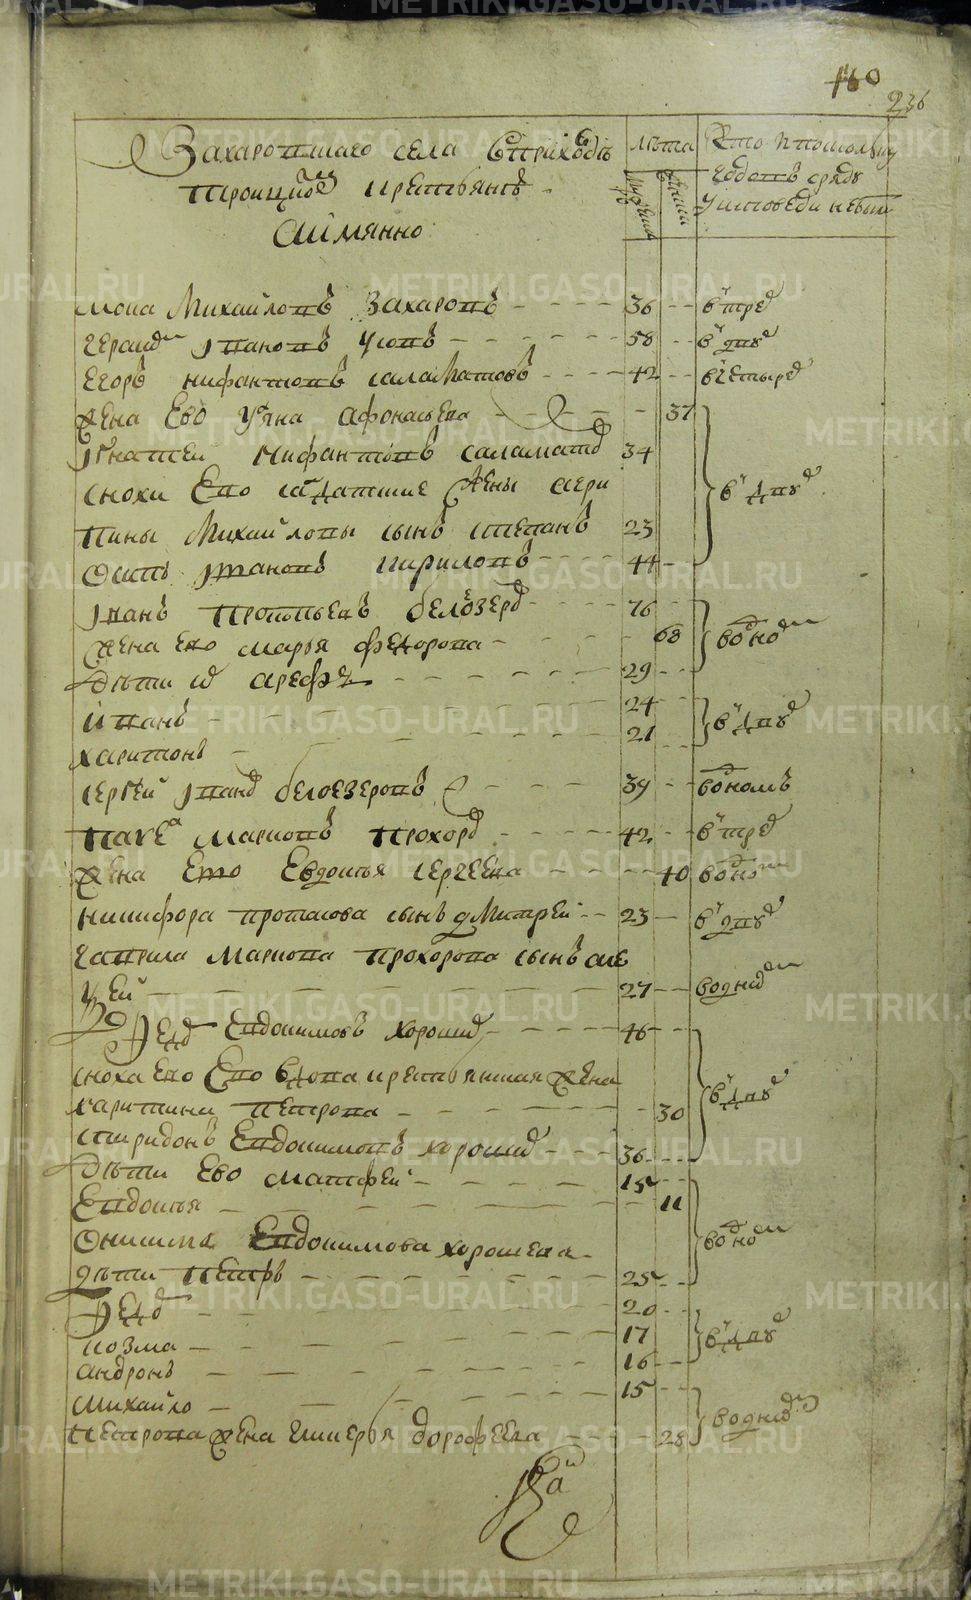 160
236
Захаровшаго села вприходѣ
Троицкое крестьянѣ
Аимянно
лѣта
мужеска
женска
Кто и поскольку
годовъ сряду
у исповеди небыли
Мона Михайловъ Захаровъ 36 втре
Герасим Ивановъ Усовъ 58 вдву
Егоръ Нифантовъ Саламатовъ 42 вчетыре
Жена Ево Уляна Афонасьева 37
Игнатей Нифантовъ Саламатов 34
Снохи Ево салдатские жены Авери
вдву
пины Михайловы сынъ Степанъ 23
Осипъ Ивановъ Кириловъ 44
Иванъ Протопьевъ Белозеров 76
Жена ево Марья Федорова 68 водном
Дѣти их Арефа 29
Иванъ 24
вдву
Харитонъ 21
Сергей Иванов Белоезеровъ 39 водномъ
Павел Марковъ Прохоров 42 втре
Жена Ево Евдокья Сергеева 40 водном
Никифора Протасова сынъ Дмитрей 23 вдву
Гаврила Маркова Прохорова сынъ Але
ксей 27 водном
Фед Евдокимовъ Хороших 46
Сноха ево Ево вдова крестьянская жена
вдву
Харитина Петрова 30
Спиридонъ Евдокимовъ Хороших 36
Дѣти Ево Матфей 15
Евдокья 11
Онисима Евдокимова Хорошева
водном
дѣти Петръ 25
Фед 20
Козма 17
вдву
Андронъ 16
Михайло 15
водном
Петрова жена Гликерья Дорофеева 28